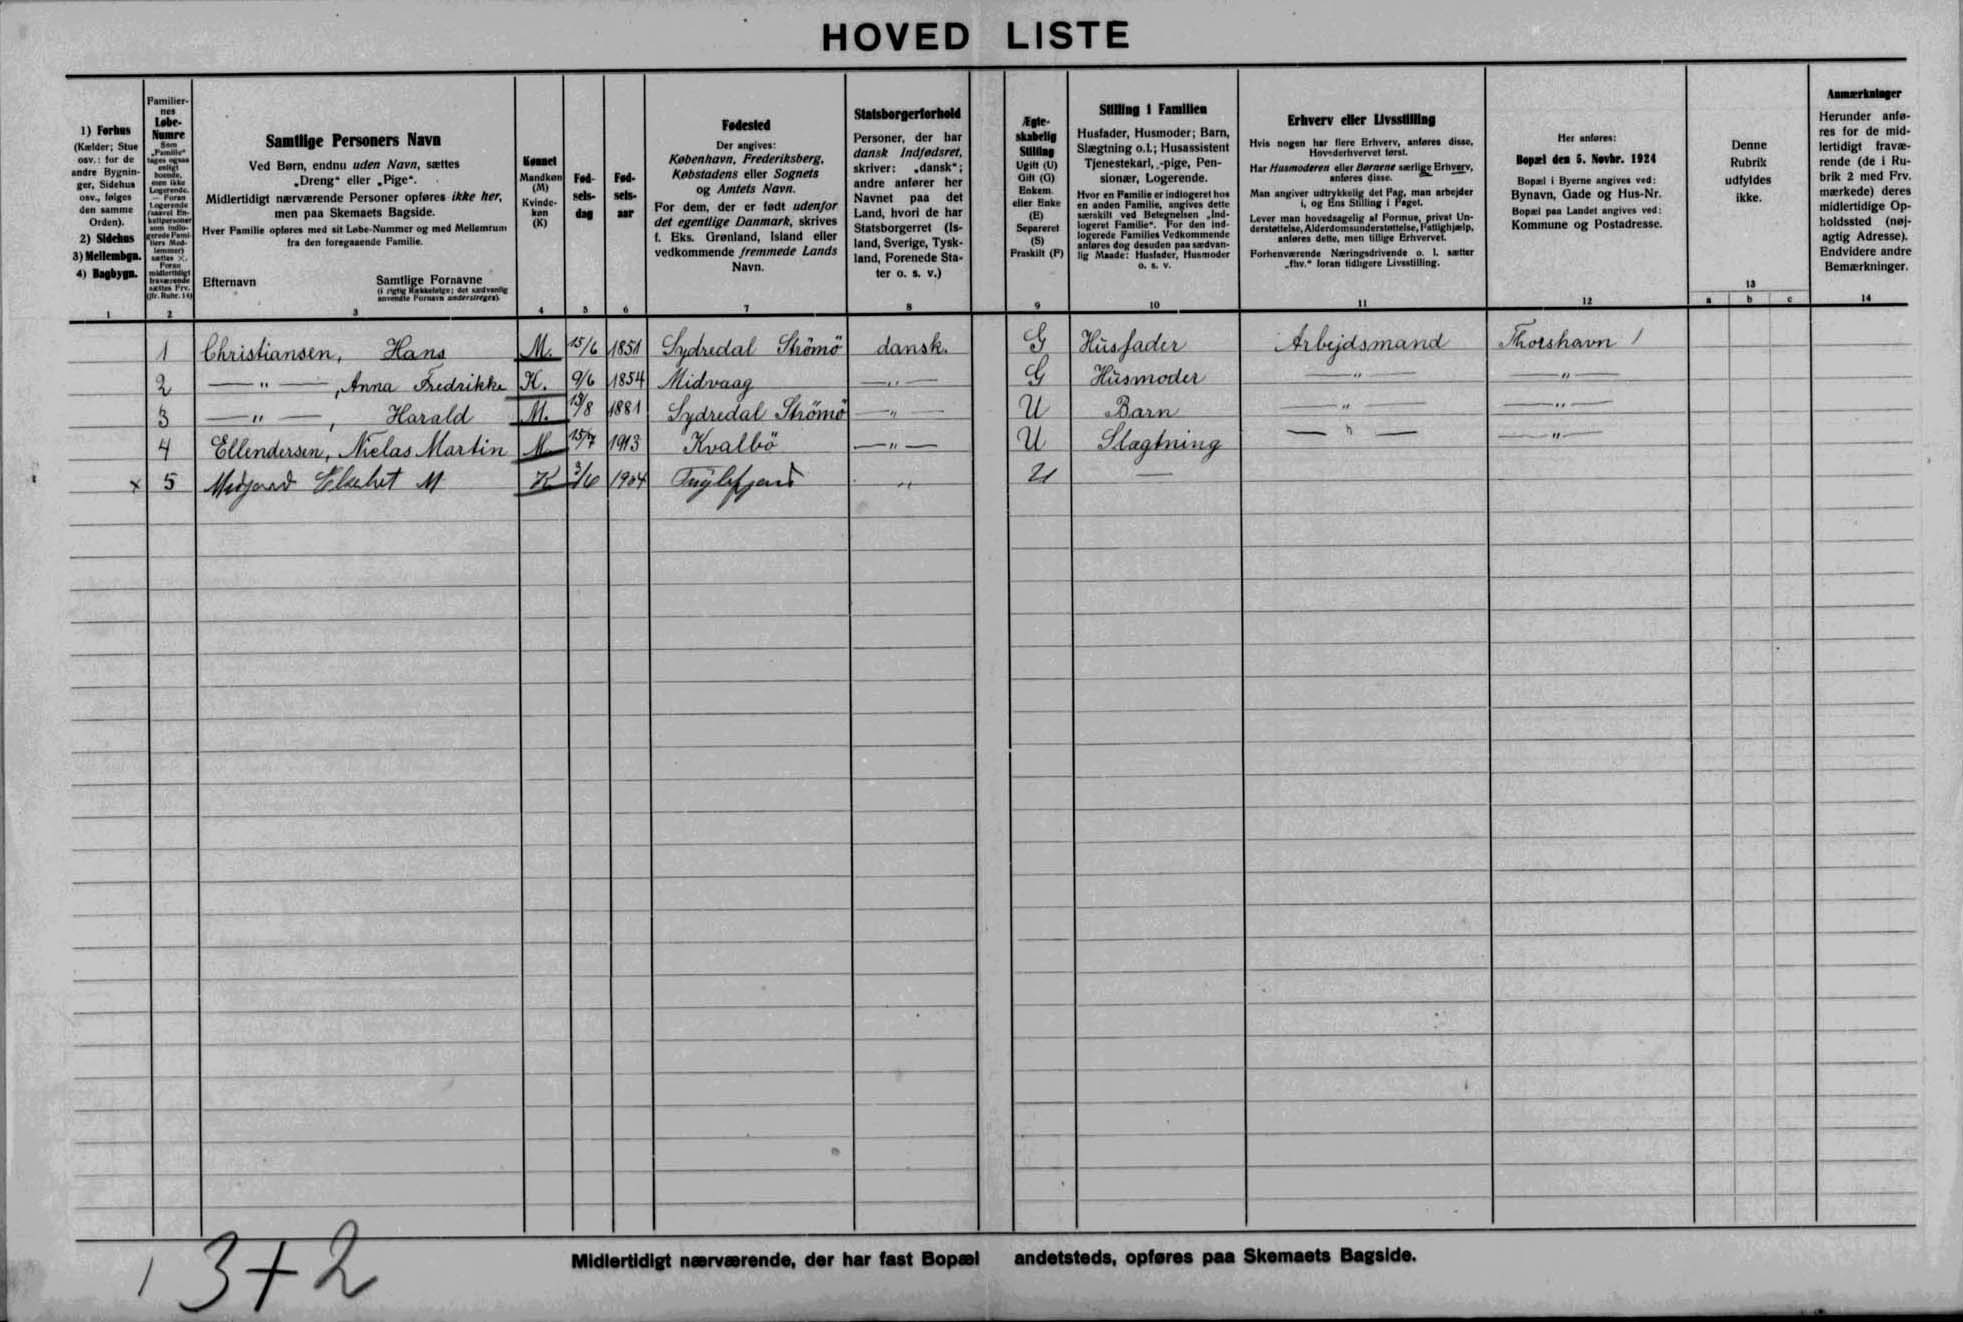 HOVED LISTE
1) Forhus
(Kælder; Stue
osv.: for de
andre Bygnin-
ger, Sidehus
osv., følges
den samme
Orden).
2) Sidehus
3) Mellembgn.
4) Bagbygn.
1
Familier-
nes
Løbe-
Numre
Som
„Familie“
tages ogsaa
enligt
boende,
men ikke
Logerende.
— Foran
Logerende
(saavel En-
keltpersoner
som indlo-
gerede Fami-
liers Med-
lemmer)
sættes ×.
Foran
midlertidigt
fraværende
sættes Frv.
(jfr. Rubr. 14)
2
Samtlige Personers Navn
Ved Børn, endnu uden Navn, sættes
„Dreng“ eller „Pige“.
Midlertidigt nærværende Personer opføres ikke her,
men paa Skemaets Bagside.
Hver Familie opføres med sit Løbe-Nummer og med Mellemrum
fra den foregaaende Familie.
Efternavn Samtlige Fornavne
(i rigtig Rækkefølge; det sædvanlig
anvendte Fornavn understreges).
3
Kønnet
Mandkøn
(M)
Kvinde-
køn
(K)
4
Fød-
sels-
dag
5
Fød-
sels-
aar
6
Fødested
Der angives:
København, Frederiksberg,
Købstadens eller Sognets
og Amtets Navn.
For dem, der er født udenfor
det egentlige Danmark, skrives
f. Eks. Grønland, Island eller
vedkommende fremmede Lands
Navn.
7
Statsborgerforhold
Personer, der har
dansk Indfødsret,
skriver: „dansk“;
andre anfører her
Navnet paa det
Land, hvori de har
Statsborgerret (Is-
land, Sverige, Tysk-
land, Forenede Sta-
ter o. s. v.)
8
Ægte-
skabelig
Stilling
Ugift (U)
Gift (G)
Enkem.
eller Enke
(E)
Separeret
(S)
Fraskilt (F)
9
Stilling i Familien
Husfader, Husmoder; Barn,
Slægtning o.l.; Husassistent
Tjenestekarl, -pige, Pen-
sionær, Logerende.
Hvor en Familie er indlogeret hos
en anden Familie, angives dette
særskilt ved Betegnelsen „Ind-
logeret Familie“. For den ind-
logerede Families Vedkommende
anføres dog desuden paa sædvan-
lig Maade: Husfader, Husmoder
o. s. v.
10
Erhverv eller Livsstilling
Hvis nogen har flere Erhverv, anføres disse,
Hovederhvervet først.
Har Husmoderen eller Børnene særlige Erhverv,
anføres disse.
Man angiver udtrykkelig det Fag, man arbejder
i, og Ens Stilling i Faget.
Lever man hovedsagelig af Formue, privat Un-
derstøttelse, Alderdomsunderstøttelse, Fattighjælp,
anføres dette, men tillige Erhvervet.
Forhenværende Næringsdrivende o. l. sætter
„fhv.“ foran tidligere Livsstilling.
11
Her anføres:
Bopæl den 5. Novbr. 1924
Bopæl i Byerne angives ved:
Bynavn, Gade og Hus-Nr.
Bopæl paa Landet angives ved:
Kommune og Postadresse.
12
Denne
Rubrik
udfyldes
ikke.
13
a b c
Anmærkninger
Herunder anfø-
res for de mid-
lertidigt fravæ-
rende (de i Ru-
brik 2 med Frv.
mærkede) deres
midlertidige Op-
holdssted (nøj-
agtig Adresse).
Endvidere andre
Bemærkninger.
14
1 Christiansen, Hans M. 15/6 1851 Sydredal Strömö dansk. G Husfader Arbejdsmand Thorshavn /
2 — " — , Anna Fredrikke K. 9/6 1854 Midvaag — " — G Husmoder — " — — " —
3 — " — , Harald M. 13/8 1881 Sydredal Strömö — " — U Barn — " — — " —
4 Ellendersen, Niclas Martin M. 15/7 1913 Kvalbö — " — U Slægtning — " — — " —
× 5 Midjord Elsebet M K 3/6 1904 Fuglefjord " U —
/ 3 + 2
Midlertidigt nærværende, der har fast Bopæl andetsteds, opføres paa Skemaets Bagside.